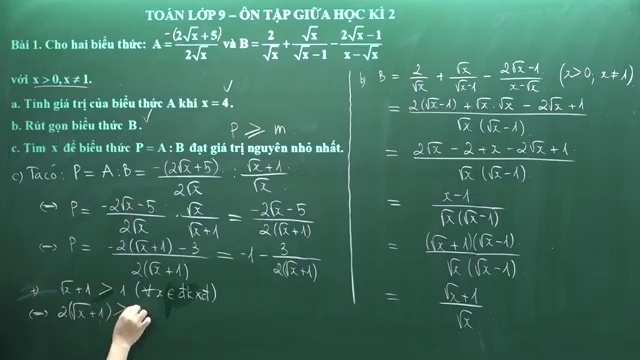 TOÁN LỚP 9 – ÔN TẬP GIỮA HỌC KÌ 2
Bài 1. Cho hai biểu thức: A = -(2√x + 5) / 2√x và B = 2/√x + √x/(√x - 1) - (2√x - 1)/(x - √x)
với x > 0, x ≠ 1.
a. Tính giá trị của biểu thức A khi x = 4. ✓
b. Rút gọn biểu thức B. ✓
P ⩾ m
c. Tìm x để biểu thức P = A : B đạt giá trị nguyên nhỏ nhất.
c) Ta có: P = A : B = -(2√x + 5) / 2√x : (√x + 1) / √x
⇔ P = (-2√x - 5) / 2√x . √x / (√x + 1) = (-2√x - 5) / 2(√x + 1)
⇔ P = (-2(√x + 1) - 3) / 2(√x + 1) = -1 - 3 / 2(√x + 1)
+) √x + 1 > 1 (∀x ∈ đkxđ)
⇔ 2(√x + 1) >
b) B = 2/√x + √x/(√x - 1) - (2√x - 1)/(x - √x) (x > 0; x ≠ 1)
= (2(√x - 1) + √x . √x - 2√x + 1) / √x (√x - 1)
= (2√x - 2 + x - 2√x + 1) / √x (√x - 1)
= (x - 1) / √x (√x - 1)
= (√x + 1)(√x - 1) / √x (√x - 1)
= (√x + 1) / √x